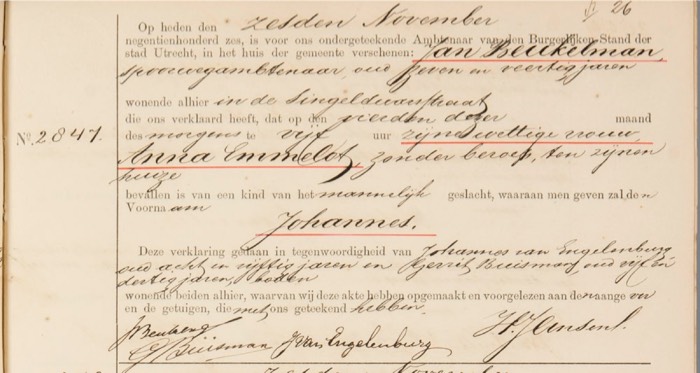 26
Op heden den zesden November
negentienhonderd zes, is voor ons ondergeteekende Ambtenaar van den Burgerlijken Stand der
stad Utrecht, in het huis der gemeente verschenen: Jan Beukelman,
spoorwegambtenaar, oud zeven en veertig jaren
wonende alhier in de Singeldwarsstraat
die ons verklaard heeft, dat op den vierden dezer maand
des morgens te vijf uur zijne wettige vrouw,
No. 2847.
Anna Emmelot, zonder beroep, ten zijnen
huize
bevallen is van een kind van het mannelijk geslacht, waaraan men geven zal den
Voornaam
Johannes.
Deze verklaring gedaan in tegenwoordigheid van Johannes van Engelenburg
oud acht en vijftig jaren en Gerrit Buisman, oud vijf en
dertig jaren, boden
wonende beiden alhier, waarvan wij deze akte hebben opgemaakt en voorgelezen aan den aangever
en de getuigen, die met ons geteekend hebben.
G Buisman J van Engelenburg
zesden November